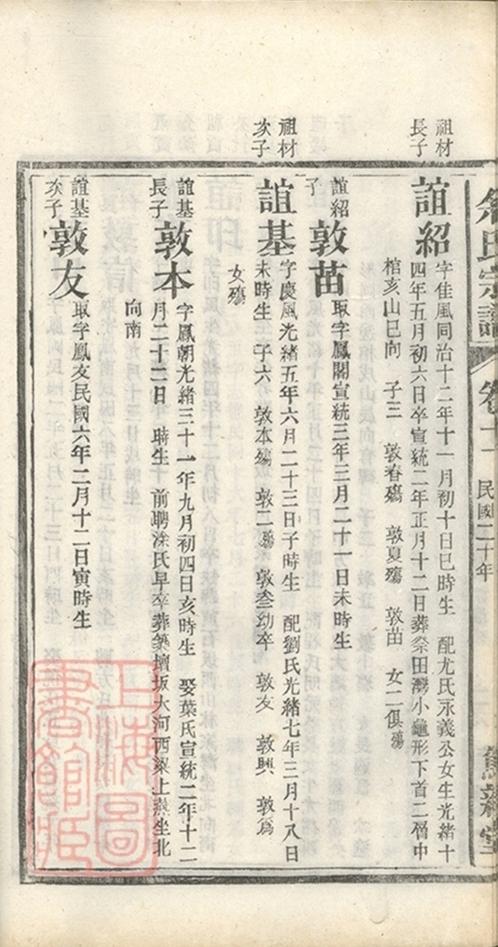 余氏宗譜 卷十一 民國二十年
祖材長子
誼紹 字佳風同治十二年十一月初十日巳時生 配尤氏永義公女生光緒十
四年五月初六日卒宣統二年正月十二日葬祭田灣小龜形下首二層中
棺亥山巳向 子三 敦春殤 敦夏殤 敦苗 女二俱殤
誼紹子
敦苗 取字鳳閣宣統三年三月二十一日未時生
祖材次子
誼基 字慶風光緒五年六月二十三日子時生 配劉氏光緒七年三月十八日
未時生 子六 敦本 敦二殤 敦叁幼卒 敦友 敦興 敦爲
女殤
誼基長子
敦本 字鳳朝光緒三十一年九月初四日亥時生 娶葉氏宣統二年十二
月二十二日 時生 前聘洪氏早卒葬築壇坂大河西梁上坐北
向南
誼基次子
敦友 取字鳳友民國六年二月十二日寅時生
上海圖書館